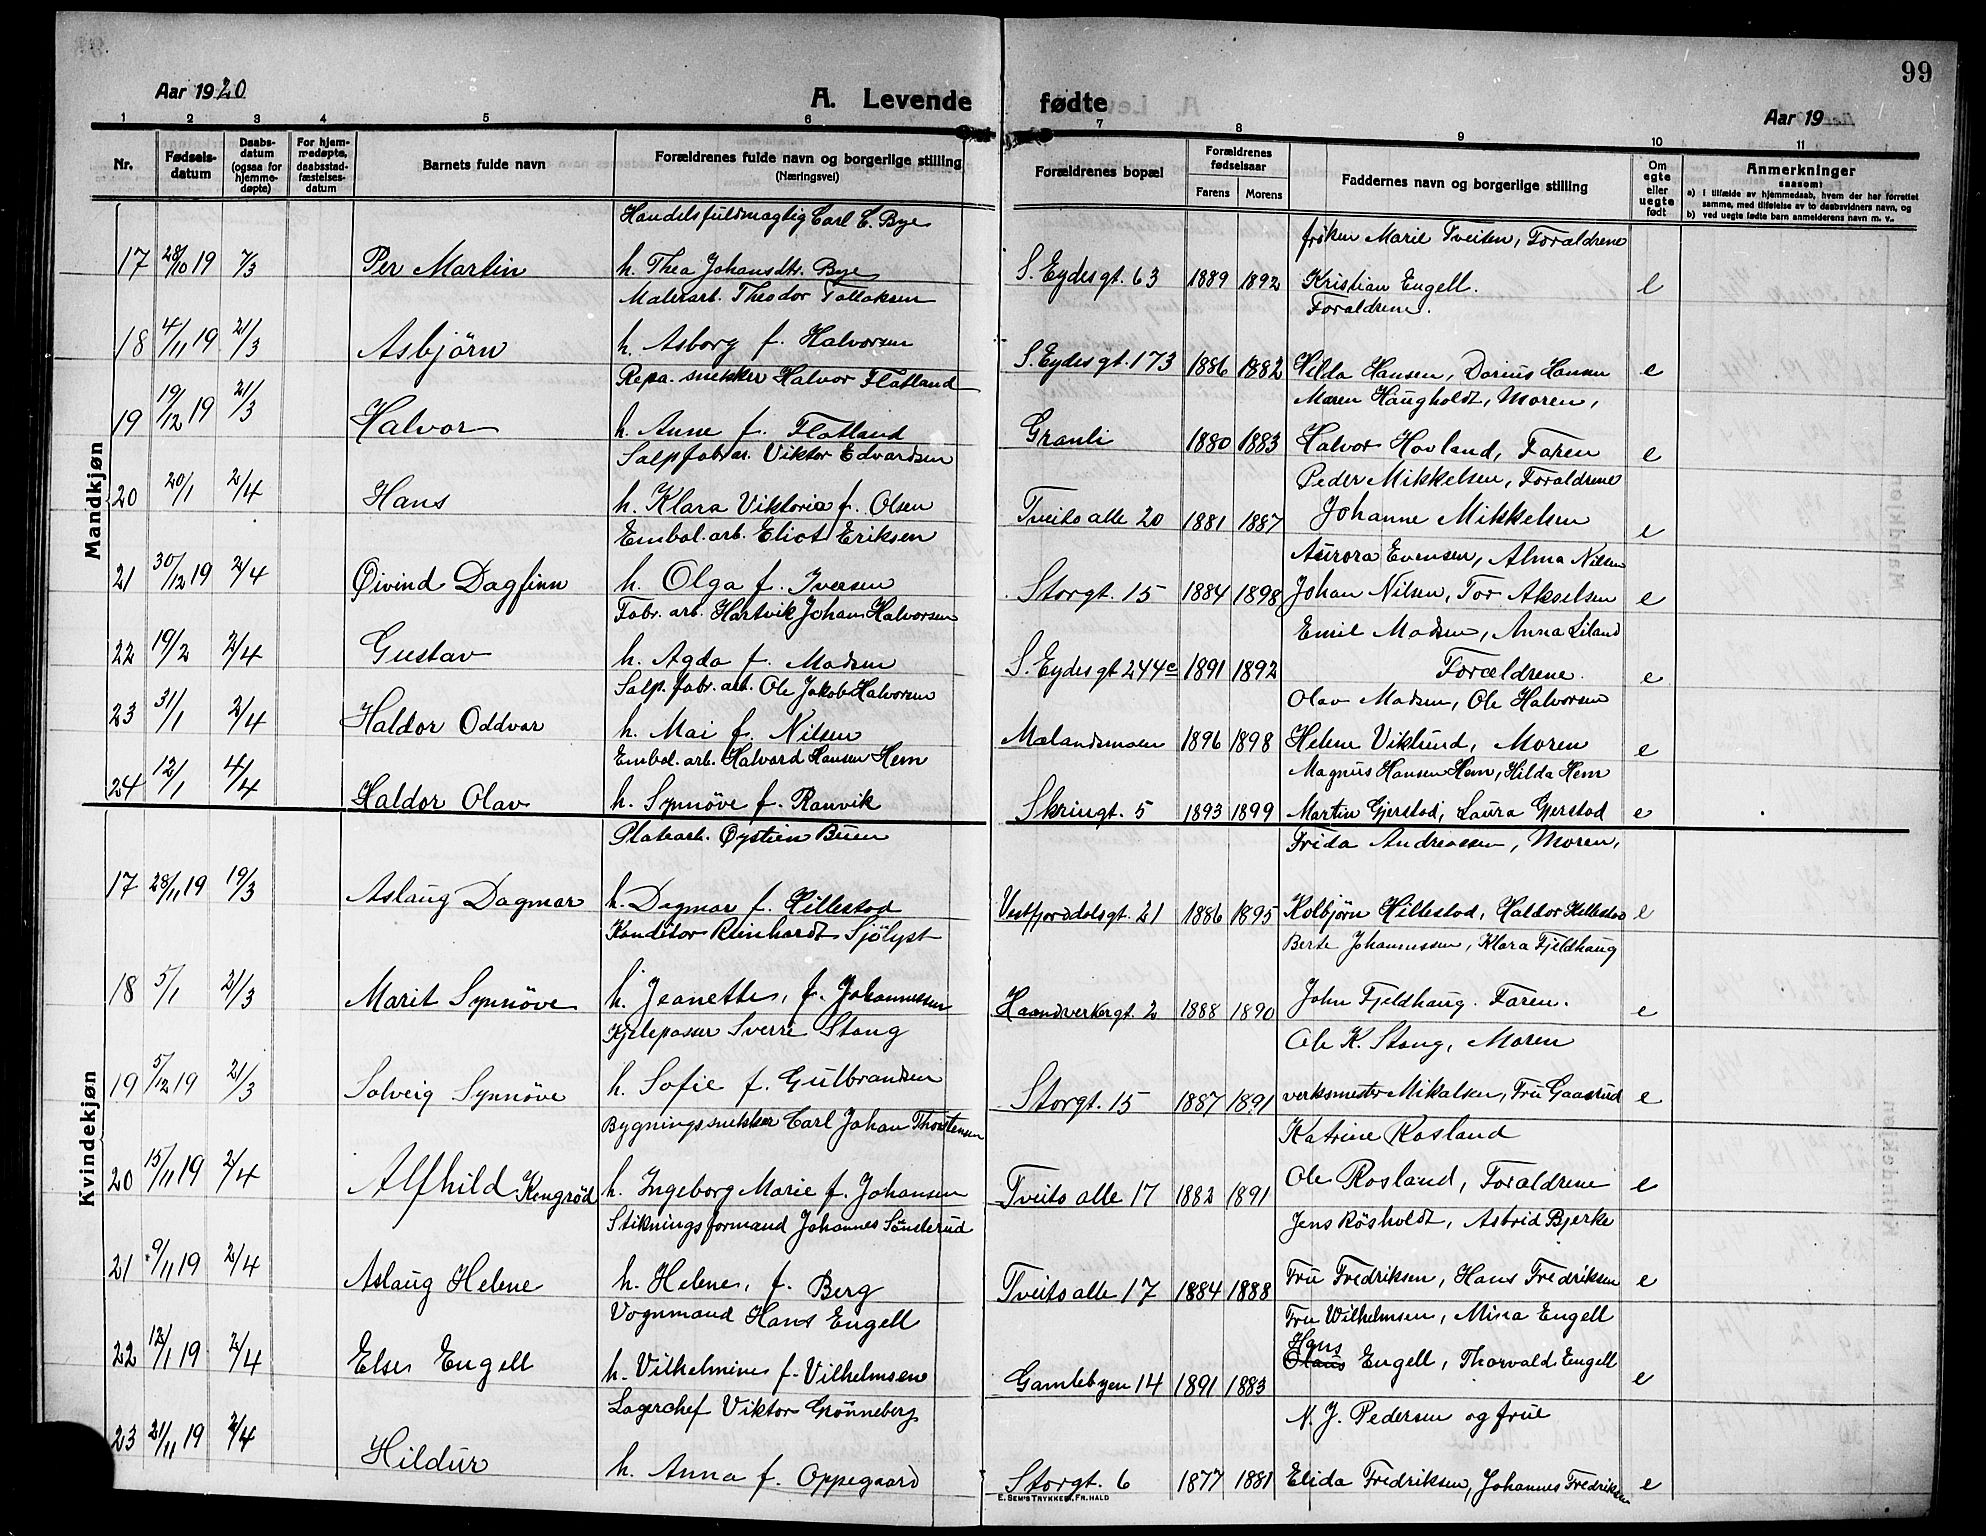 99
Aar 1920
A. Levende fødte
Aar 19
1 2 3 4 5 6 7 8 9 10 11
Nr.
Fødselsdatum
Daabsdatum (ogsaa for hjemmedøpte)
For hjemmedøpte, daabsstadfæstelsesdatum
Barnets fulde navn
Forældrenes fulde navn og borgerlige stilling
(Næringsvei)
Forældrenes bopæl
Forældrenes fødselsaar
Farens Morens
Faddernes navn og borgerlige stilling
Om egte eller uegte født
Anmerkninger
saasom:
a) i tilfælde av hjemmedaab, hvem der har forrettet samme, med tilføielse av to daabsvidners navn, og
b) ved uegte fødte barn anmelderens navn m. v.
Mandkjøn
Handelsfuldmægtig Carl E. Bye frøken Marie Tveiten, Forældrene
17 28/10 19 7/3 Per Martin h. Thea Johansdtr. Bye S. Eydesgt. 63 1889 1892 Kristian Engell. e
Malerarb. Theodor Tallaksen Forældrene.
18 4/11 19 21/3 Asbjörn h. Asborg f. Halvorsen S. Eydesgt. 173 1886 1882 Hilda Hansen, Darius Hansen e
Repa. snekker Halvor Flatland Maren Haugholdt, Moren,
19 19/12 19 21/3 Halvor h. Anne f. Flatland Granli 1880 1883 Halvor Hovland, Faren e
Salp. fabr. ar. Viktor Edvardsen Peder Mikkelsen, Forældrene
20 20/1 2/4 Hans h. Klara Viktoria f. Olsen Tveito alle 20 1881 1887 Johanne Mikkelsen e
Embal. arb. Eliot Eriksen Aurora Evensen, Alma Nilsen
21 30/12 19 2/4 Øivind Dagfinn h. Olga f. Iversen Storgt. 15 1884 1898 Johan Nilsen, Tor Akselsen e
Fabr. arb. Hartvik Johan Halvorsen Emil Madsen, Anna Liland
22 19/2 2/4 Gustav h. Agda f. Madsen S. Eydesgt 244c 1891 1892 Forældrene. e
Salp. fabr. arb. Ole Jakob Halvorsen Olav Madsen, Ole Halvorsen
23 31/1 2/4 Haldor Oddvar h. Mai f. Nilsen Mælandsmoen 1896 1898 Helene Viklund, Moren e
Embal. arb. Halvard Hansen Hem Magnus Hansen Hem, Hilda Hem
24 12/1 4/4 Haldor Olav h. Synnöve f. Ranvik Skringt. 5 1893 1899 Martin Gjerstad, Laura Gjerstad e
Kvindekjøn
Platearb. Øystein Buen Frida Andreassen, Moren,
17 28/11 19 19/3 Aslaug Dagmar h. Dagmar f. Hillestad Vestfjorddalsgt. 21 1886 1895 Kolbjörn Hillestad, Haldor Hillestad e
Konditor Reinhardt Sjölyst Berte Johannessen, Klara Fjeldhaug
18 5/1 21/3 Marit Synnöve h. Jeanette, f. Johannessen Haandverkergt. 2 1888 1890 John Fjeldhaug. Faren. e
Kjelepasser Sverre Stang Ole K. Stang, Moren
19 5/12 19 21/3 Solveig Synnöve h. Sofie f. Gulbrandsen Storgt. 15 1887 1891 verksmester Mikalsen, Fru Gaasrud e
Bygningssnekker Carl Johan Thorstensen Katrine Rosland
20 15/11 19 2/4 Alfhild Kengröd h. Ingeborg Marie f. Johansen Tveito alle 17 1882 1891 Ole Rosland, Forældrene e
Stikningsformand Johannes Sönterud Jens Røsholdt, Astrid Bjerke
21 9/11 19 2/4 Aslaug Helene h. Helene, f. Berg Tveito alle 17 1884 1888 Fru Fredriksen, Hans Fredriksen e
Vognmand Hans Engell Fru Wilhelmsen, Mina Engell
22 12/1 19 2/4 Else Engell h. Vilhelmine f. Vilhelmsen Gamlebyen 14 1891 1883 Hans Olaus Engell, Thorvald Engell e
Lagerchef Viktor Grönneberg N. J. Pedersen og frue
23 21/11 19 2/4 Hildur h. Anna f. Oppegaard Storgt. 6 1877 1881 Elida Fredriksen, Johannes Fredriksen e
E. Sem's Trykkeri, Fr.hald